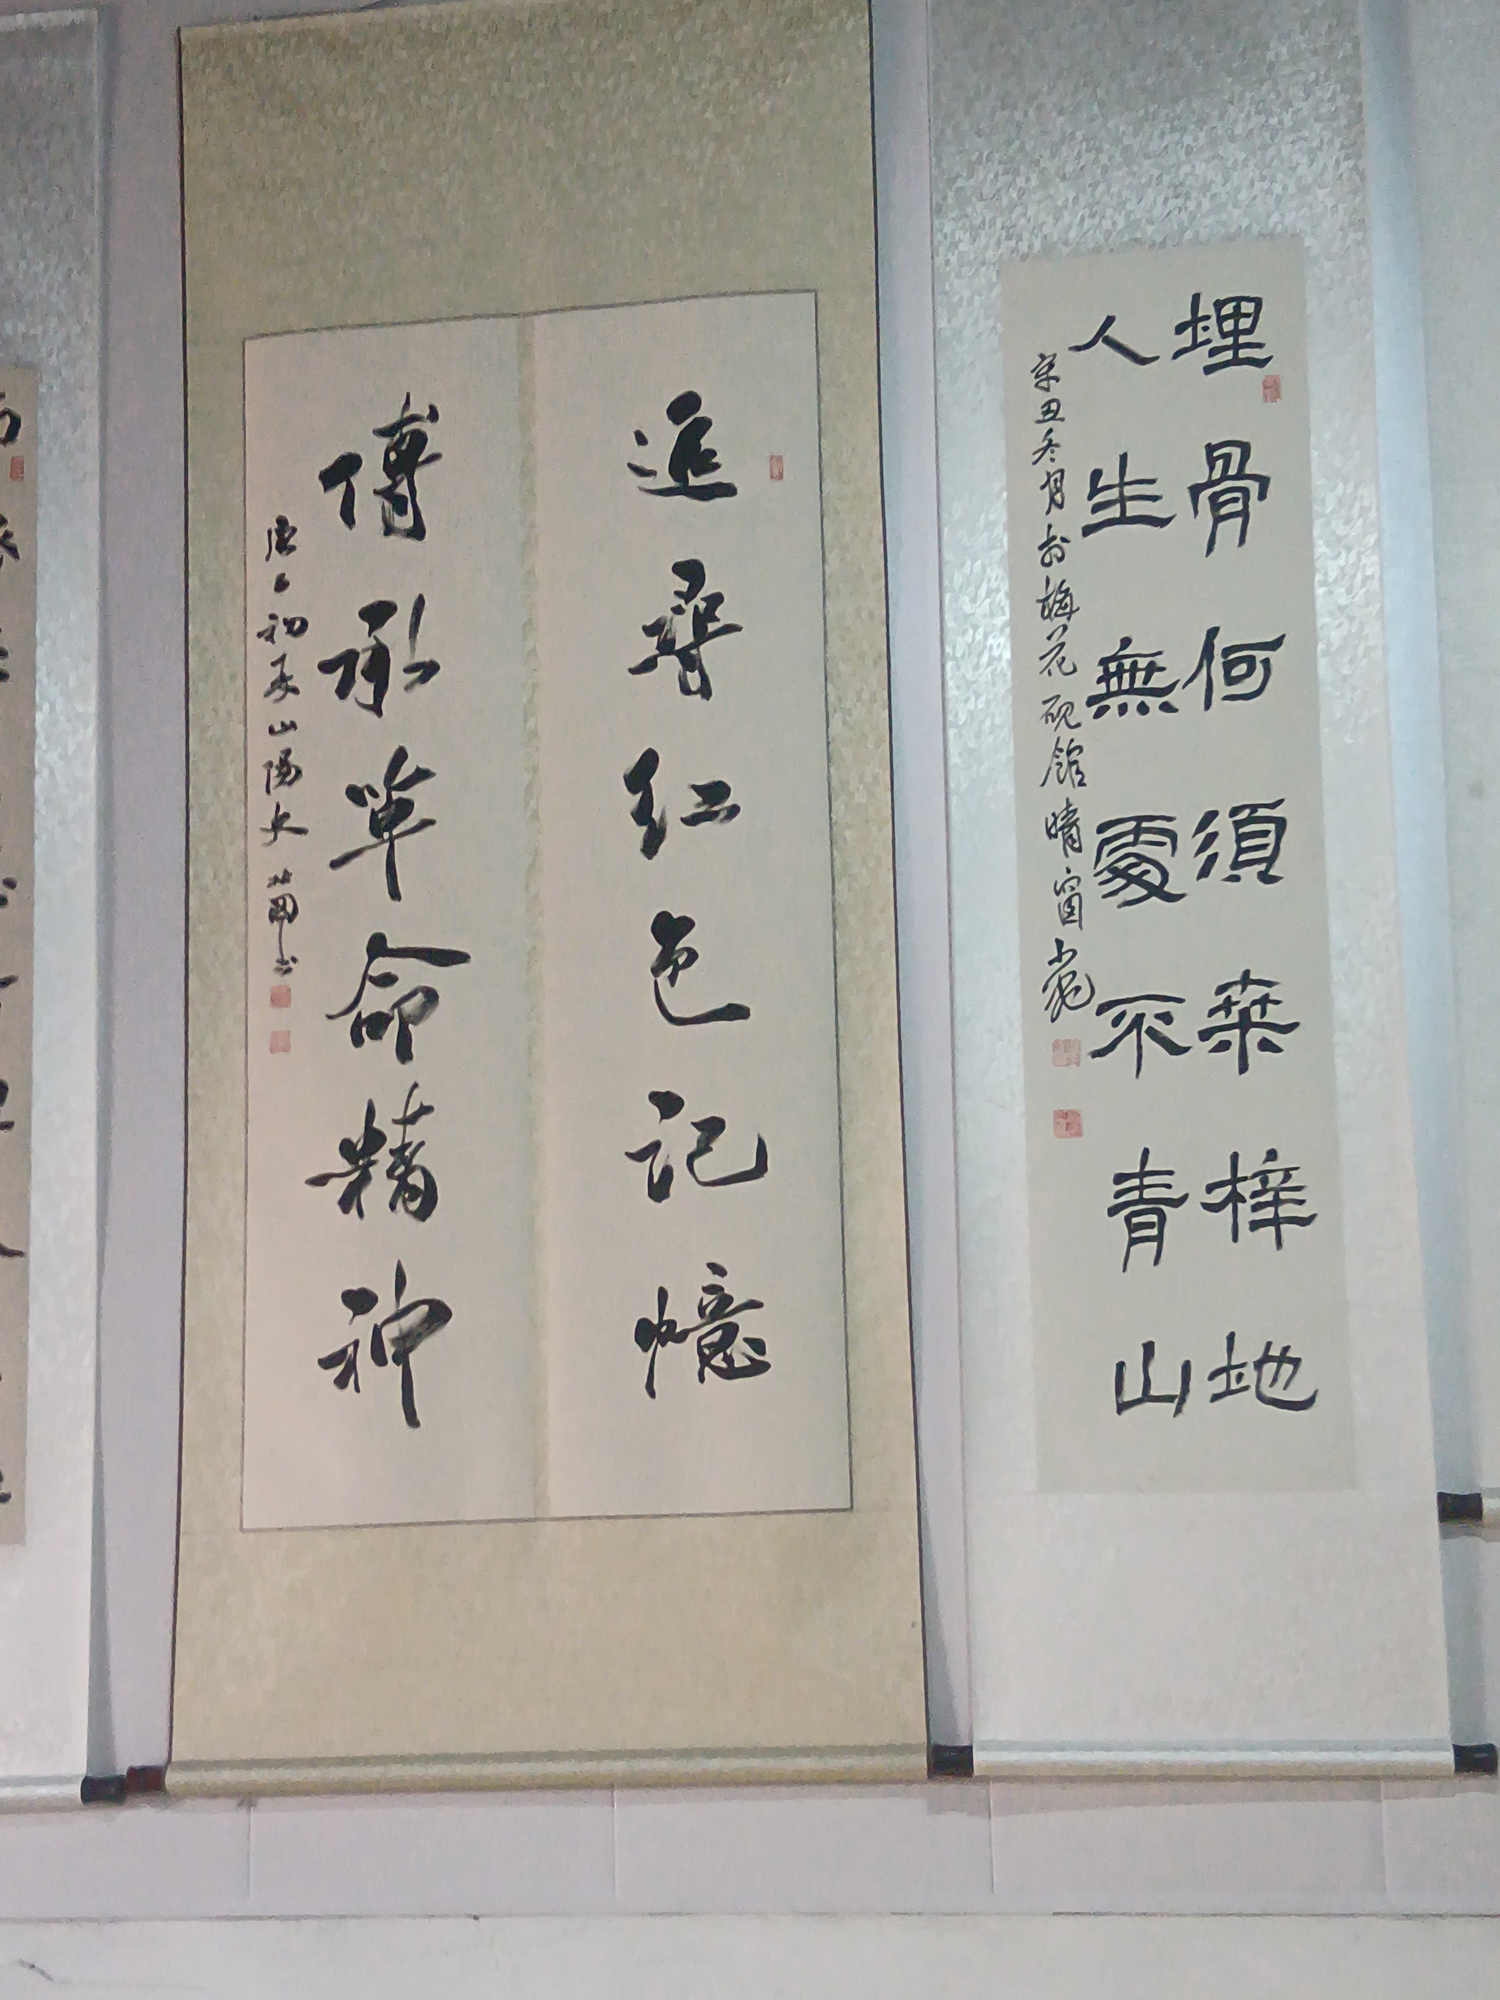 埋骨何須桒梓地
人生無處不青山
辛丑冬月於梅花硯館晴窗
追尋红色记憶
傳承革命精神
初夏山陽